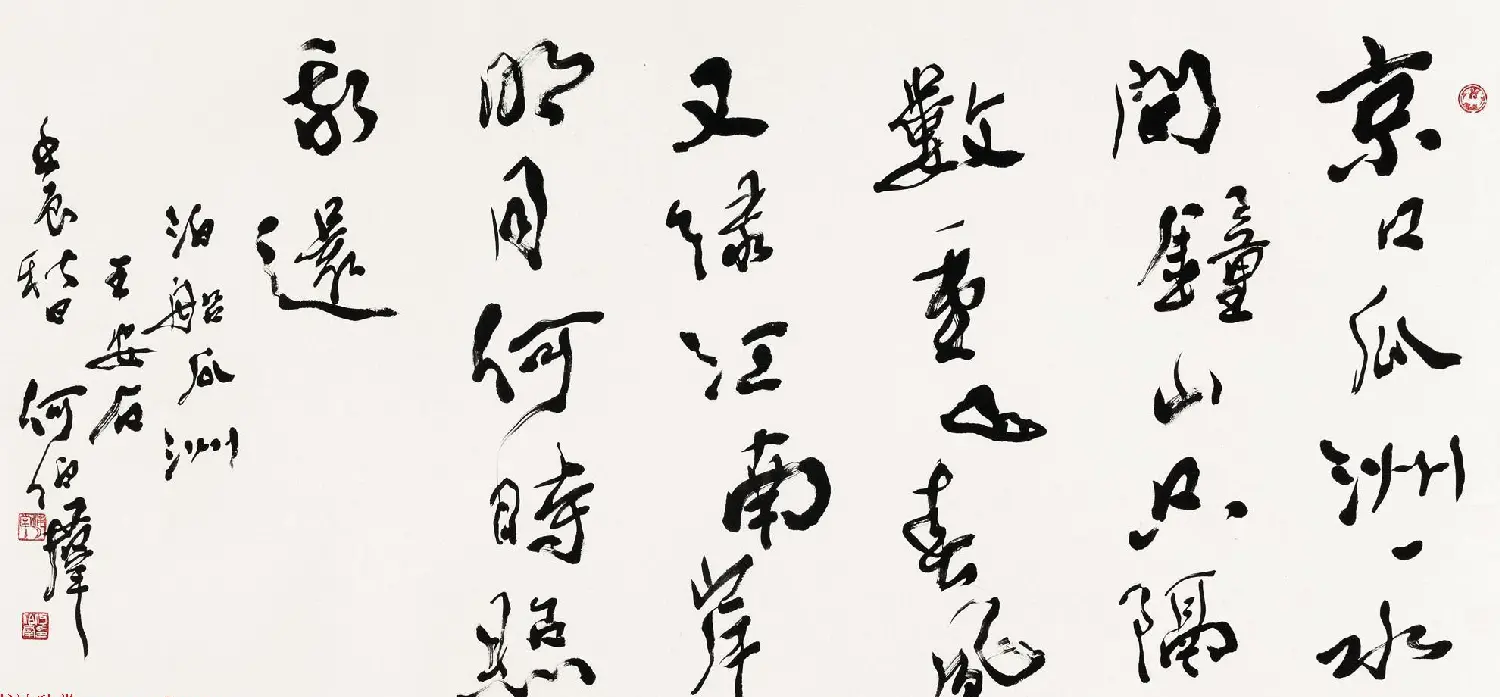 京口瓜洲一水
間鐘山只隔
數重山春風
又綠江南岸
明月何時照
我還
泊船瓜洲
王安石
壬辰 何